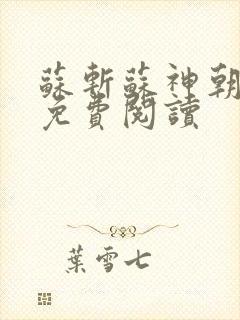 蘇斬蘇神朝
免費閱讀
葉雪七